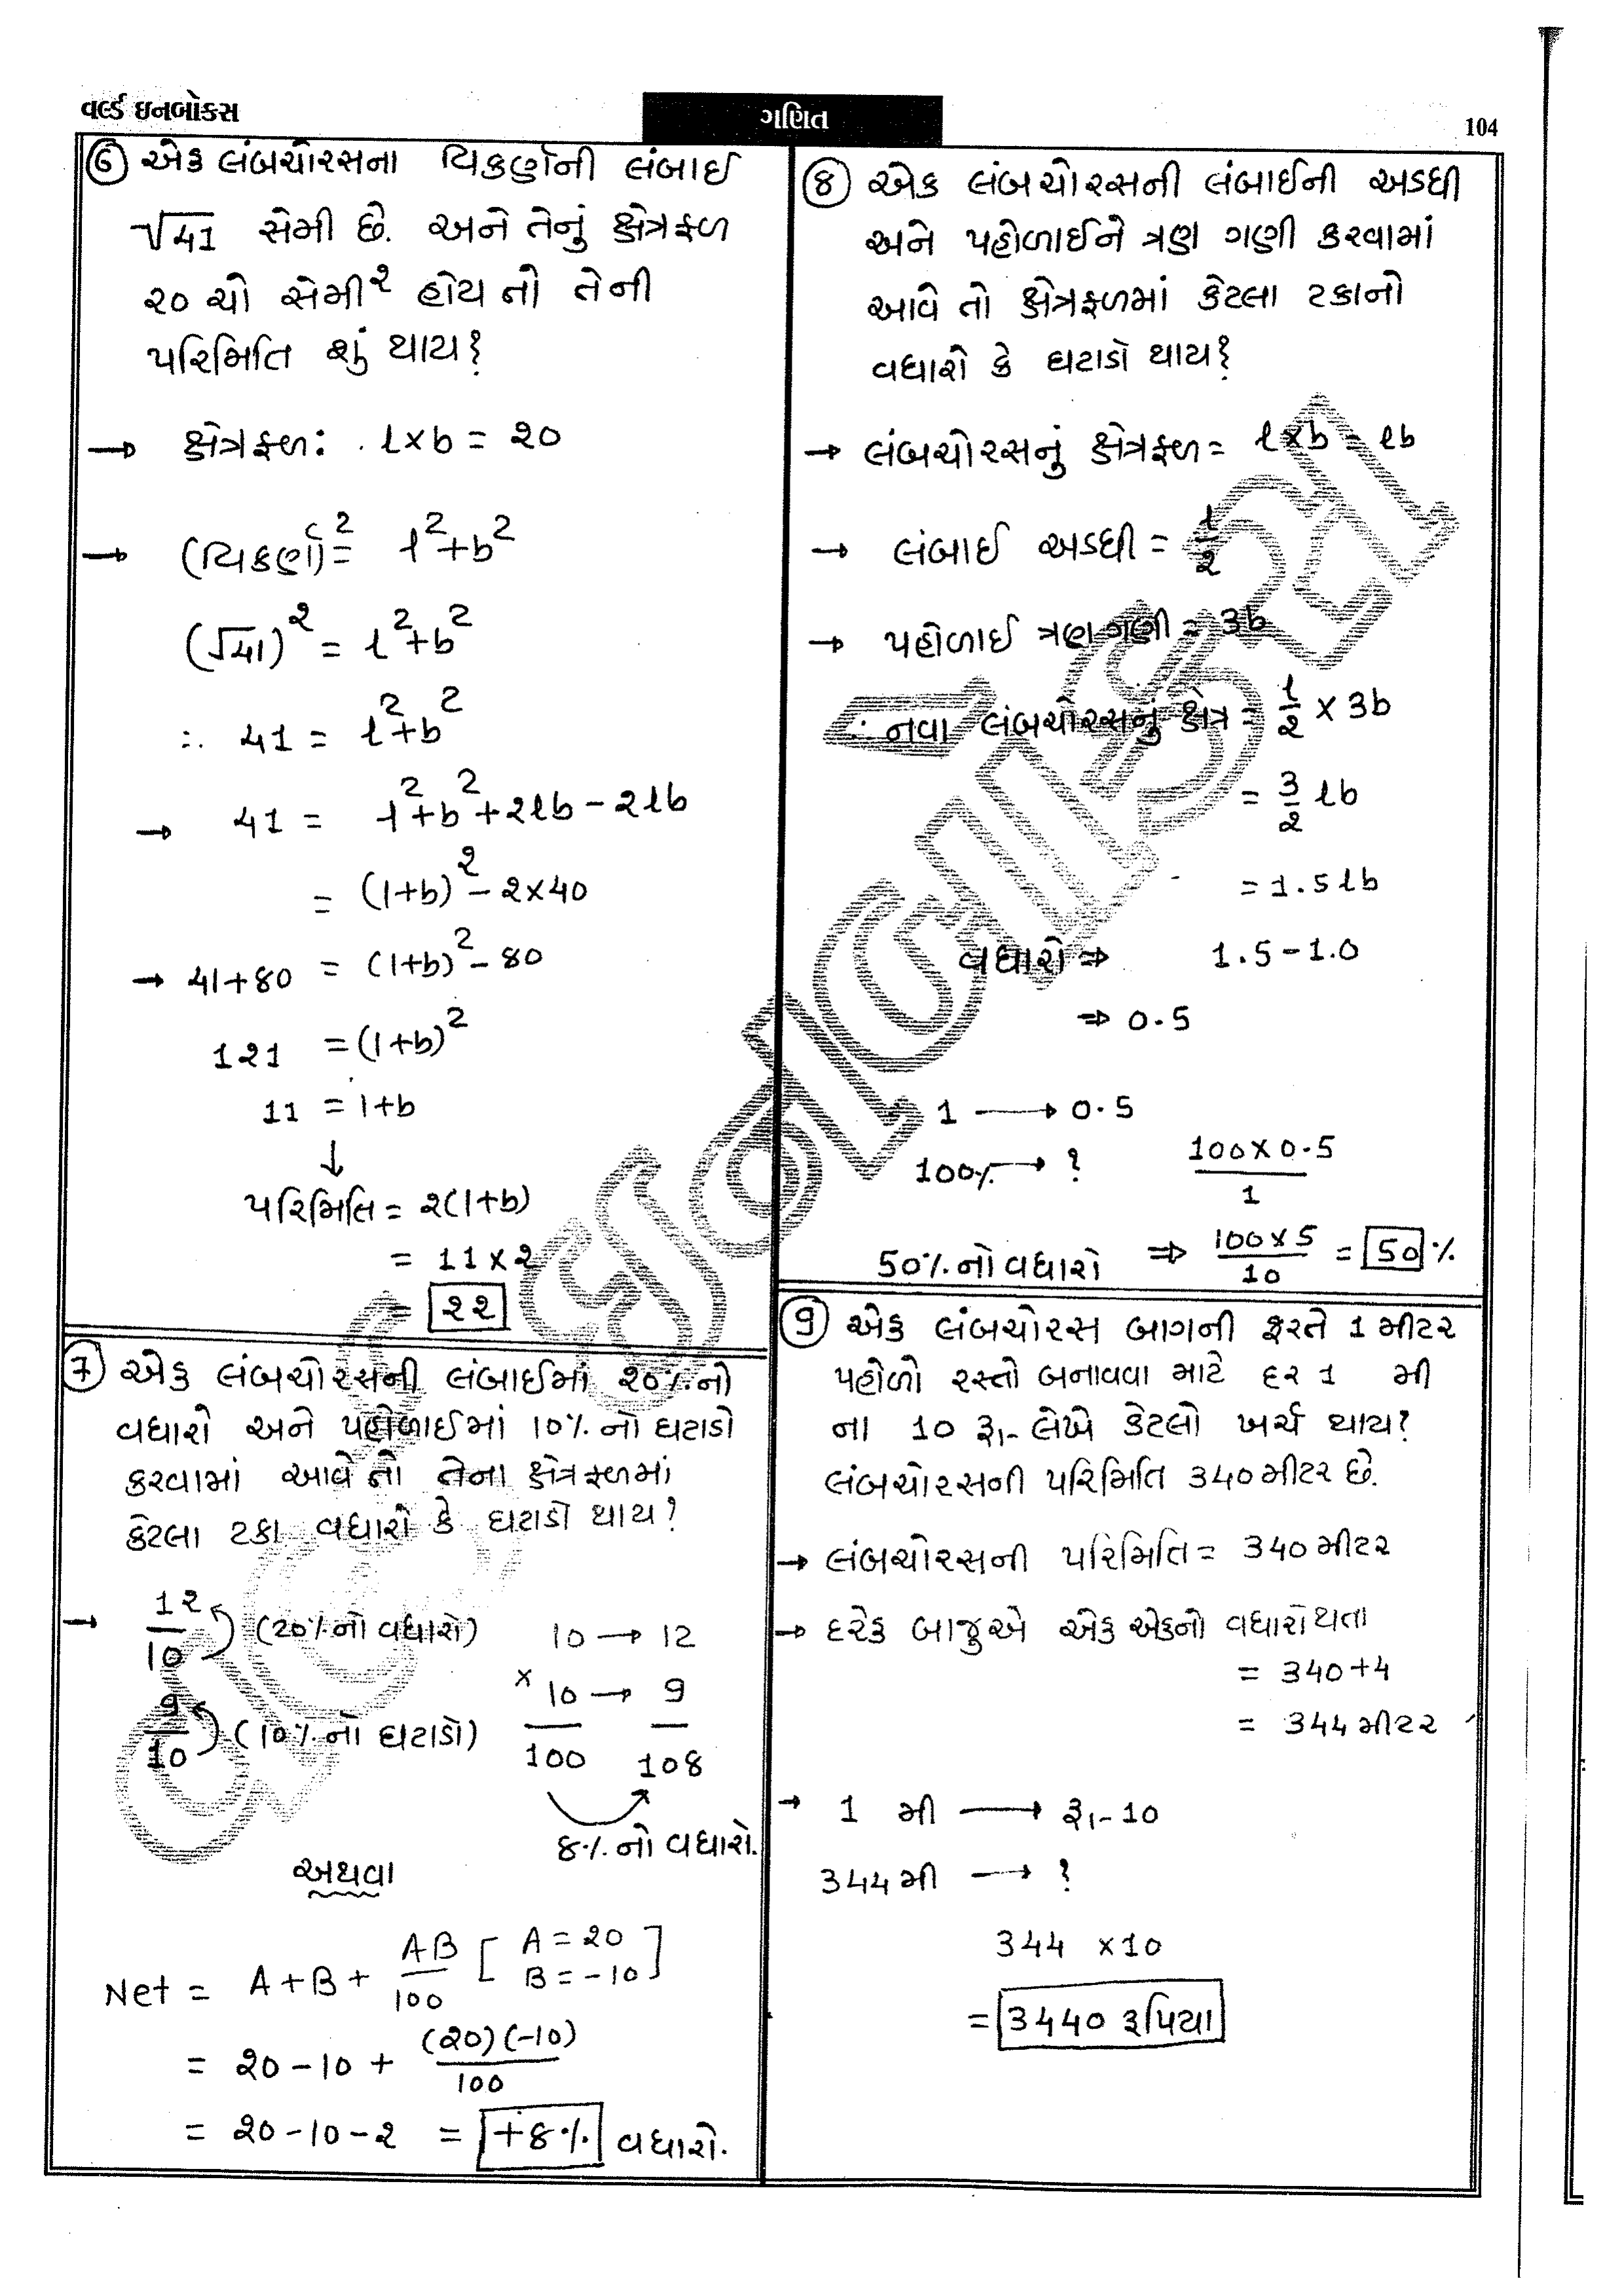 વર્લ્ડ ઇનબોક્સ
ગણિત
104
6 એક લંબચોરસના વિકર્ણની લંબાઈ
√41 સેમી છે. અને તેનું ક્ષેત્રફળ
૨૦ ચો સેમી² હોય તો તેની
પરિમિતિ શું થાય?
→ ક્ષેત્રફળ: l×b = ૨૦
→ (વિકર્ણ)² = l²+b²
(√41)² = l²+b²
∴ 41 = l²+b²
→ 41 = l²+b²+2lb-2lb
= (l+b)² - ૨×40
→ 41+80 = (l+b)² - 80
1૨1 = (l+b)²
11 = l+b
↓
પરિમિતિ = ૨(l+b)
= 11×૨
= ૨૨
7 એક લંબચોરસની લંબાઈમાં ૨૦% નો
વધારો અને પહોળાઈમાં 10% નો ઘટાડો
કરવામાં આવે તો તેના ક્ષેત્રફળમાં
કેટલા ટકા વધારો કે ઘટાડો થાય?
→ 1૨/10 (20% નો વધારો) 10 → 12
9/10 (10% નો ઘટાડો) × 10 → 9
100 108
8% નો વધારો.
અથવા
Net = A+B+ AB/100 [A = ૨0 B = -10]
= ૨0-10+ (૨0)(-10)/100
= ૨0-10-૨ = +8% વધારો.
8 એક લંબચોરસની લંબાઈની અડધી
અને પહોળાઈને ત્રણ ગણી કરવામાં
આવે તો ક્ષેત્રફળમાં કેટલા ટકાનો
વધારો કે ઘટાડો થાય?
→ લંબચોરસનું ક્ષેત્રફળ = l×b = lb
→ લંબાઈ અડધી = l/૨
→ પહોળાઈ ત્રણ ગણી = 3b
∴ નવા લંબચોરસનું ક્ષેત્ર = l/૨ × 3b
= 3/૨ lb
= 1.5 lb
વધારો ⇒ 1.5-1.0
⇒ 0.5
1 → 0.5
100% → ? 100×0.5/1
50% નો વધારો ⇒ 100×5/10 = 50 %
9 એક લંબચોરસ બાગની ફરતે 1 મીટર
પહોળો રસ્તો બનાવવા માટે દર 1 મી
ના 10 રૂ,- લેખે કેટલો ખર્ચ થાય?
લંબચોરસની પરિમિતિ 340 મીટર છે.
→ લંબચોરસની પરિમિતિ = 340 મીટર
→ દરેક બાજુએ એક એકનો વધારો થતા
= 340+4
= 344 મીટર
→ 1 મી → રૂ,- 10
344 મી → ?
344 ×10
= 3440 રૂપિયા